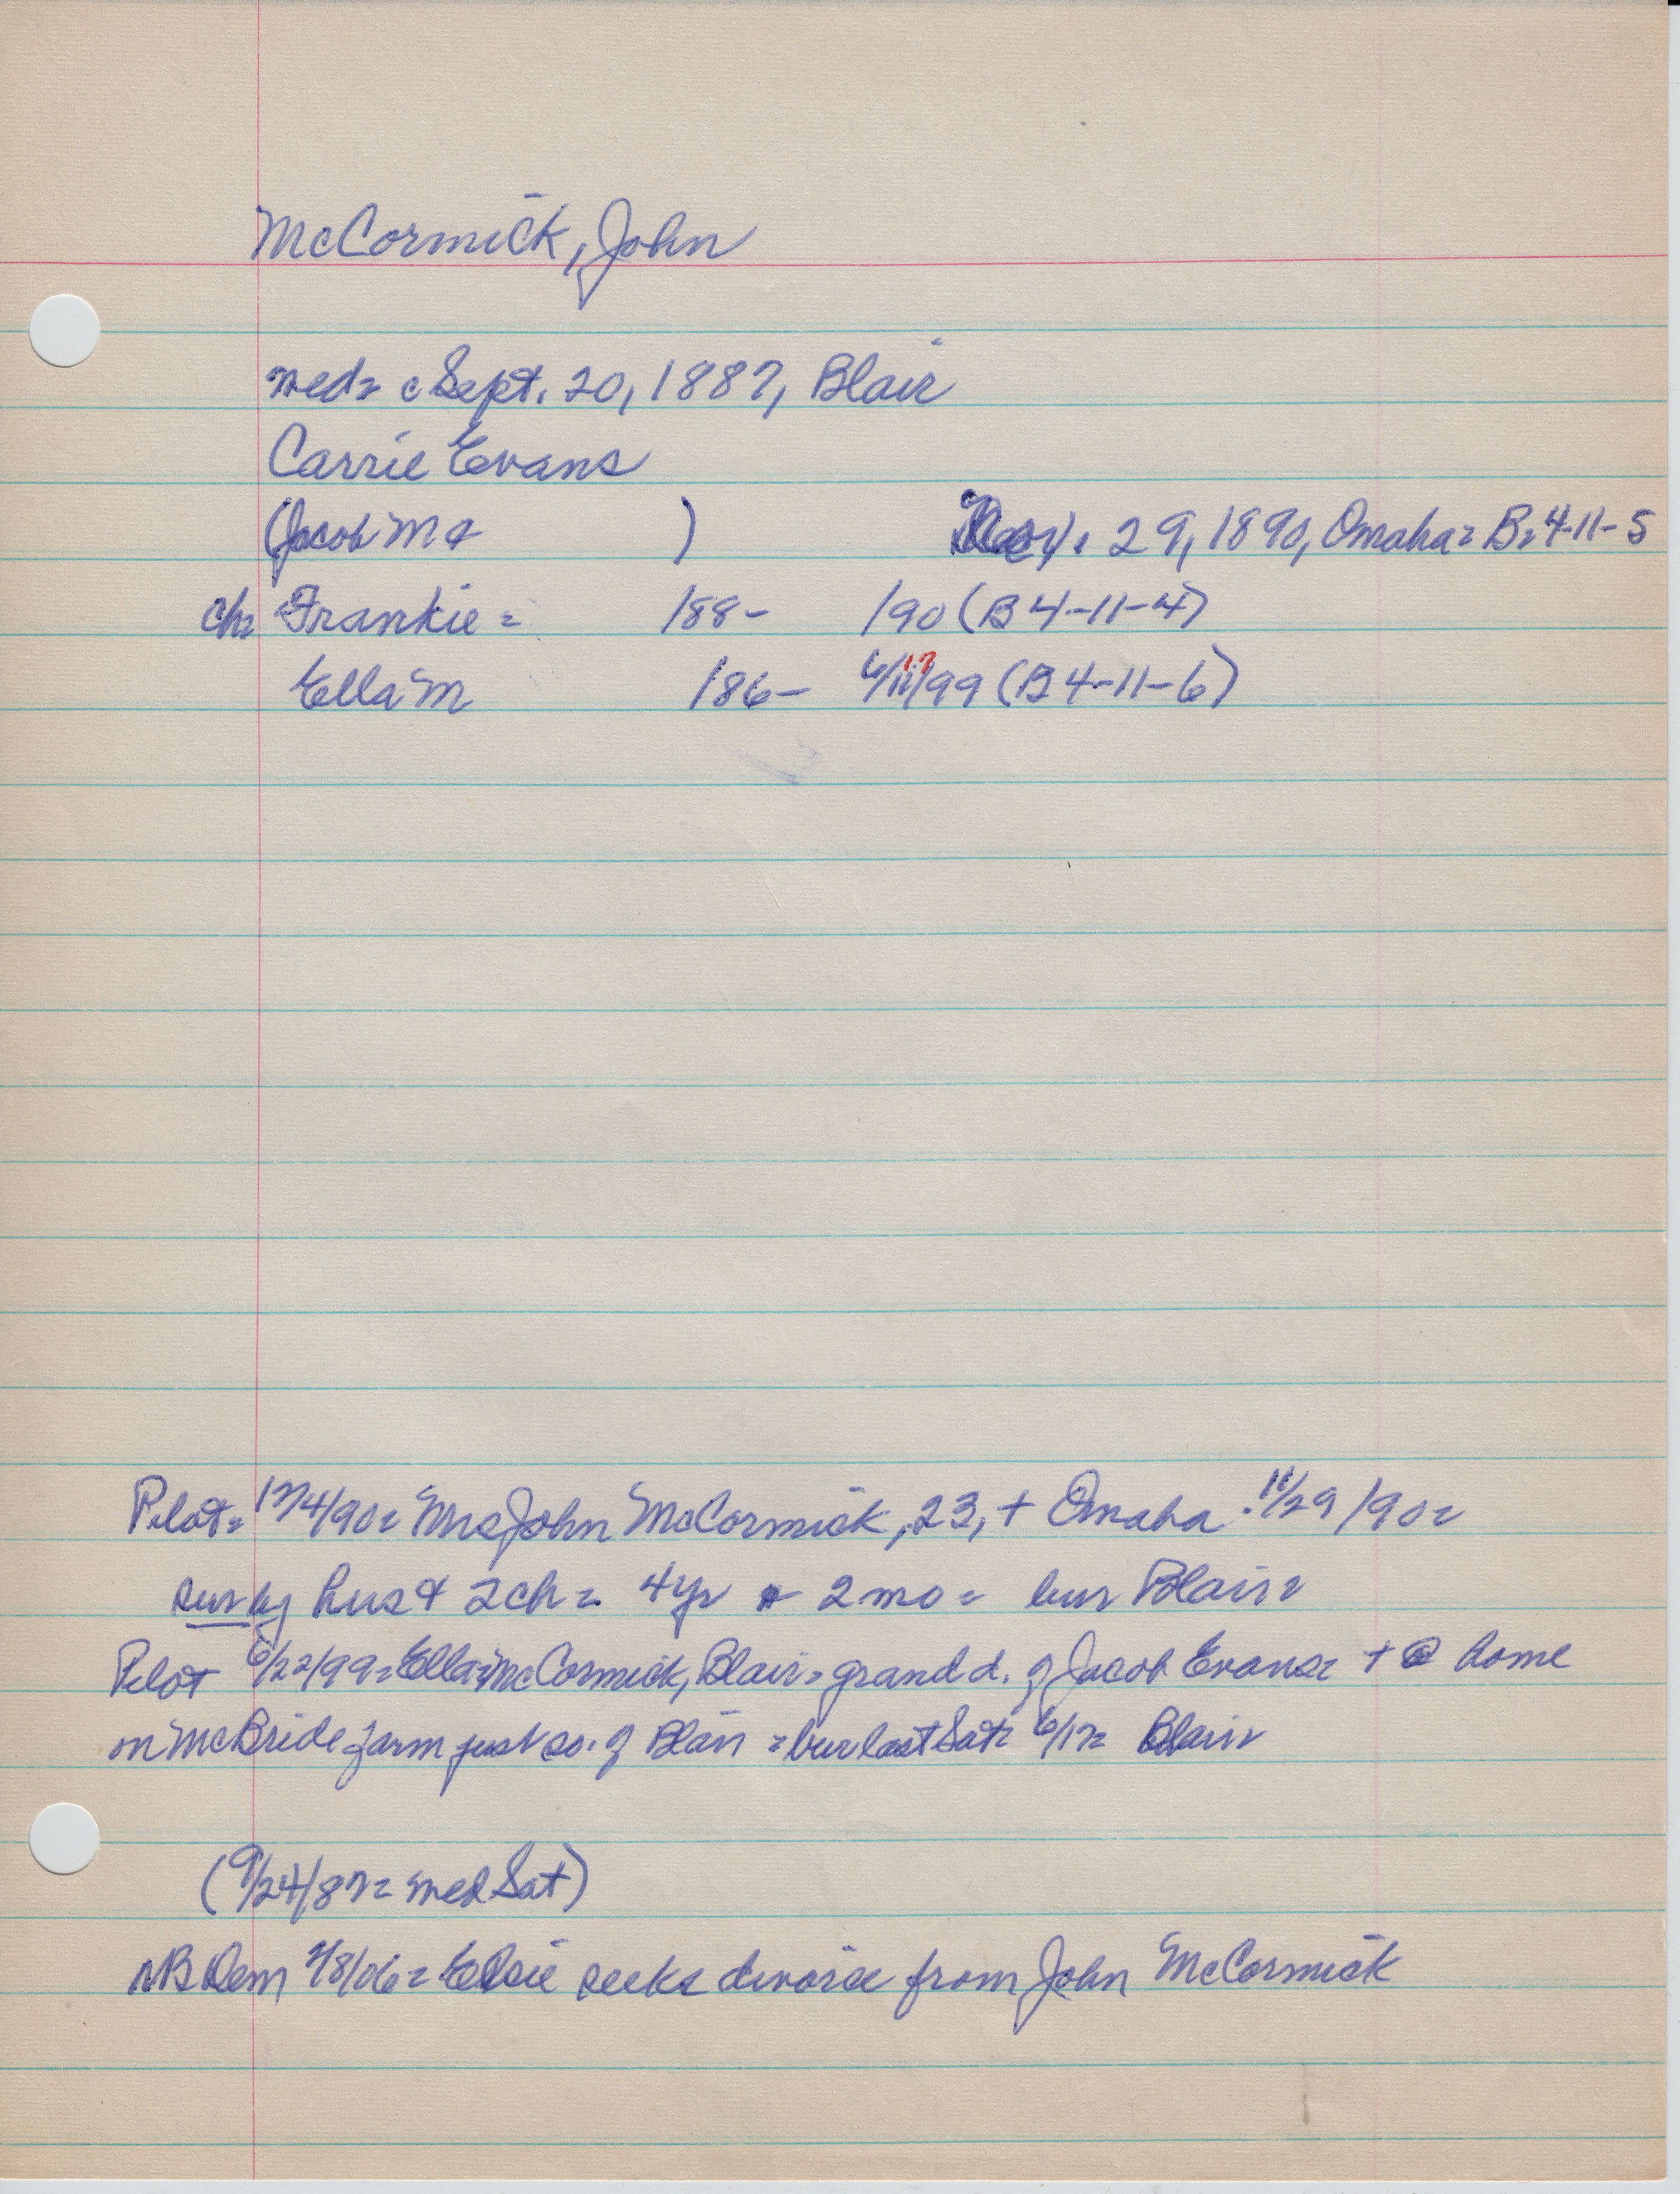 McCormick, John
wed= c Sept. 20, 1887, Blair
Carrie Evans
(Jacob M &        )        Nov. 29, 1890, Omaha= B= 4-11-5
ch= Frankie =    188-    190 (B 4-11-4)
Ella M    186-    6/17/99 (B 4-11-6)
Pilot= 12/4/90= Mrs John McCormick, 23, + Omaha 11/29/90=
sur by hus & 2 ch= 4 yr & 2 mo= bur Blair=
Pilot 6/22/99= Ella McCormick, Blair= grand d. of Jacob Evans= + @ home
on McBride farm just so. of Blair = bur last Sat= 6/17= Blair=
(9/24/87= wed Sat)
NB Dem 7/8/06= Elsie seeks divorce from John McCormick